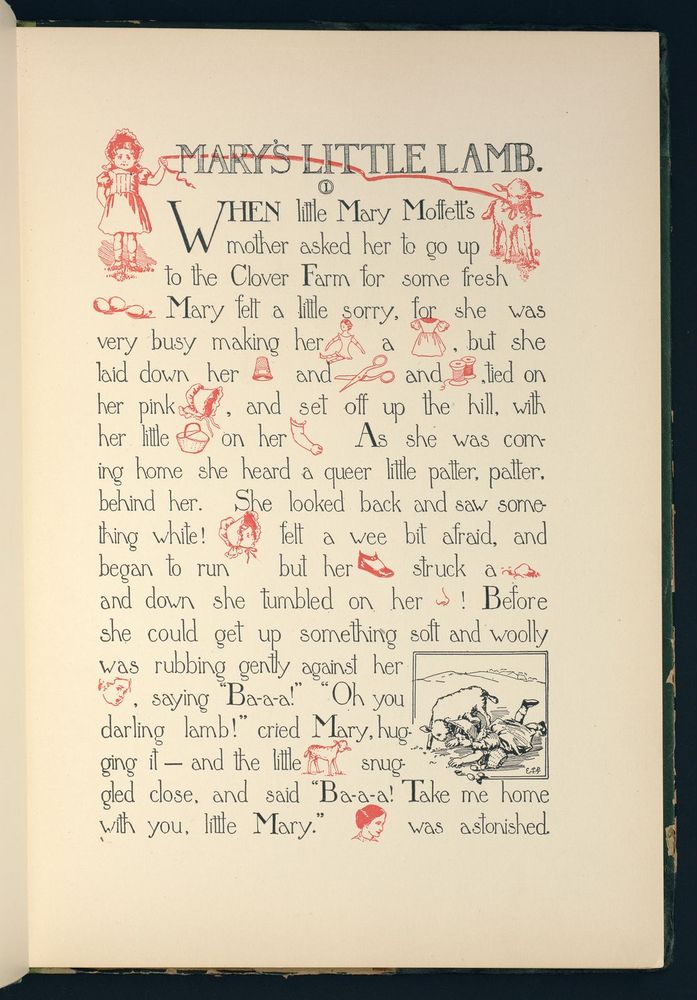 MARY'S LITTLE LAMB.
1
WHEN little Mary Moffett's
mother asked her to go up
to the Clover Farm for some fresh
Mary felt a little sorry, for she was
very busy making her a , but she
laid down her and and , tied on
her pink , and set off up the hill, with
her little on her As she was com-
ing home she heard a queer little patter, patter,
behind her. She looked back and saw some-
thing white! felt a wee bit afraid, and
began to run but her struck a
and down she tumbled on her ! Before
she could get up something soft and woolly
was rubbing gently against her
, saying "Ba-a-a!" "Oh you
darling lamb!" cried Mary, hug-
ging it — and the little snug-
gled close, and said "Ba-a-a! Take me home
with you, little Mary." was astonished.